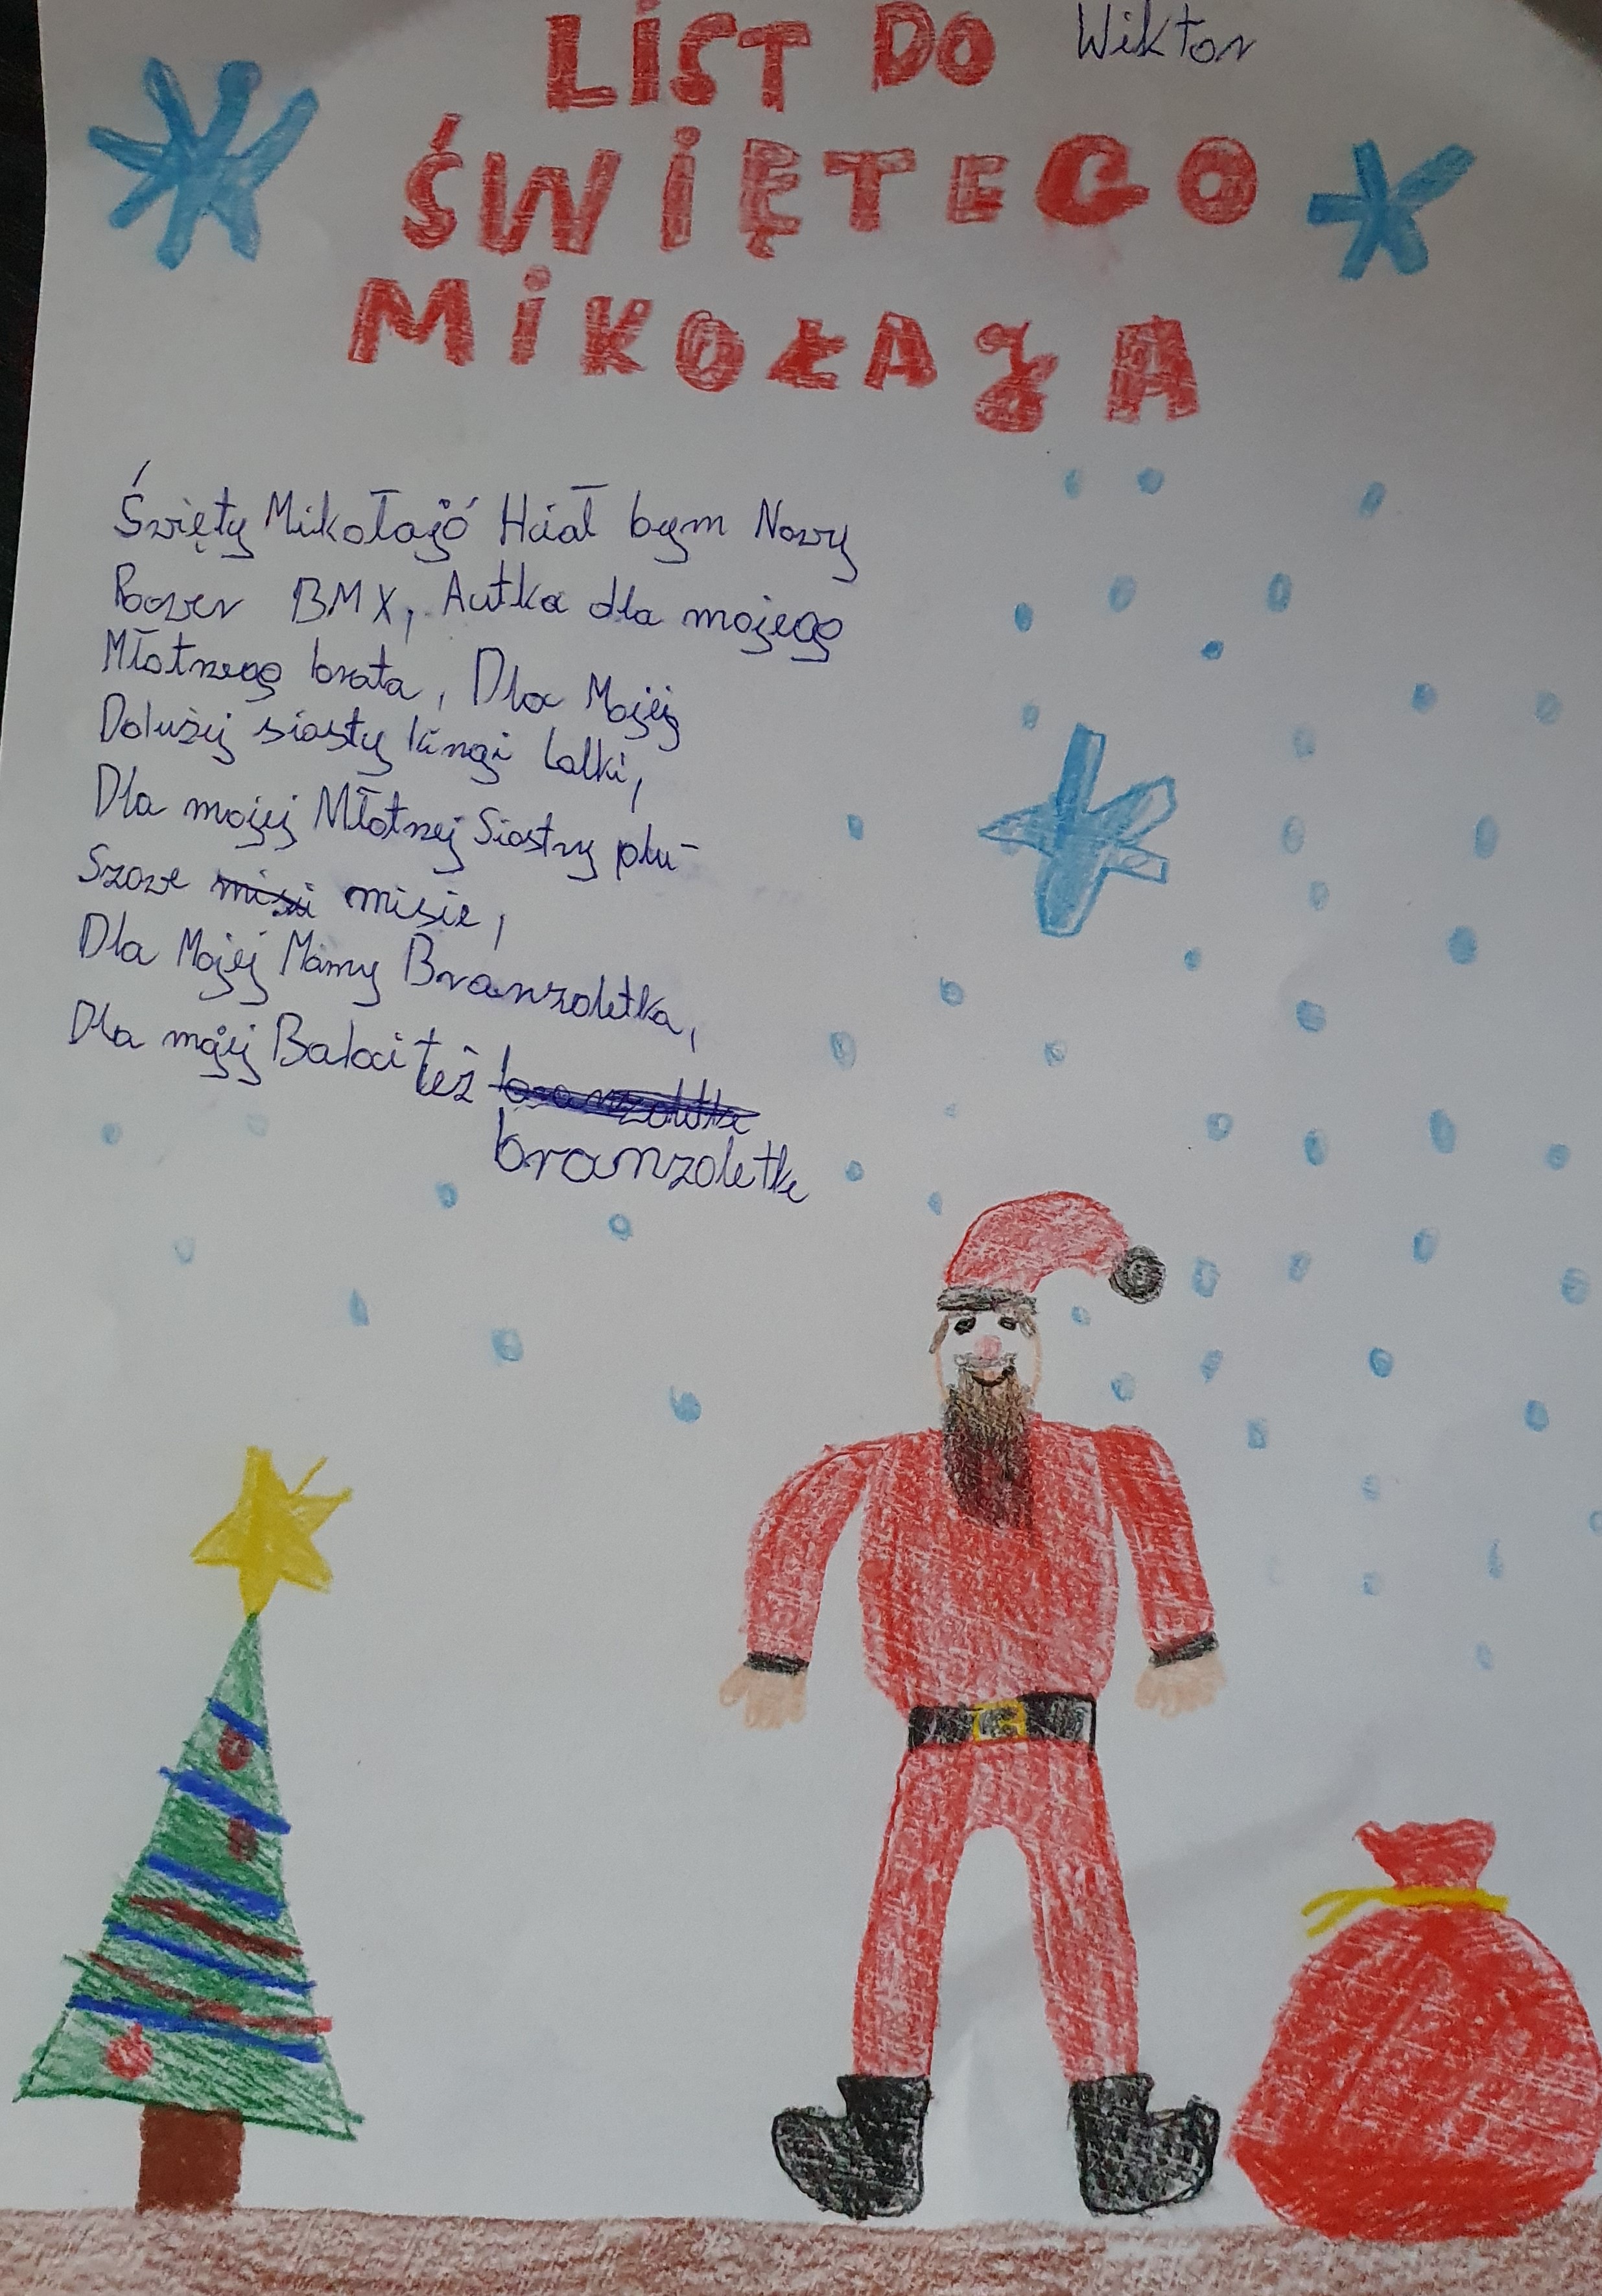 LIST DO Wiktor
ŚWIĘTEGO
MIKOŁAJA
Święty Mikołajó Hciał bym Nowy
Rower BMX, Autka dla mojego
Młotrzego brata, Dla Mojej
Dolużej siosty kingi lalki,
Dla mojej Młotrzej Siostry plu-
Szowe misii misie,
Dla Mojej Mamy Branzoletka,
Dla mojej Babci też branzoletke
branzoletke